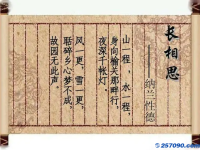 长相思
——纳兰性德
山一程，水一程，
身向榆关那畔行，
夜深千帐灯。
风一更，雪一更，
聒碎乡心梦不成，
故园无此声。
257090.com